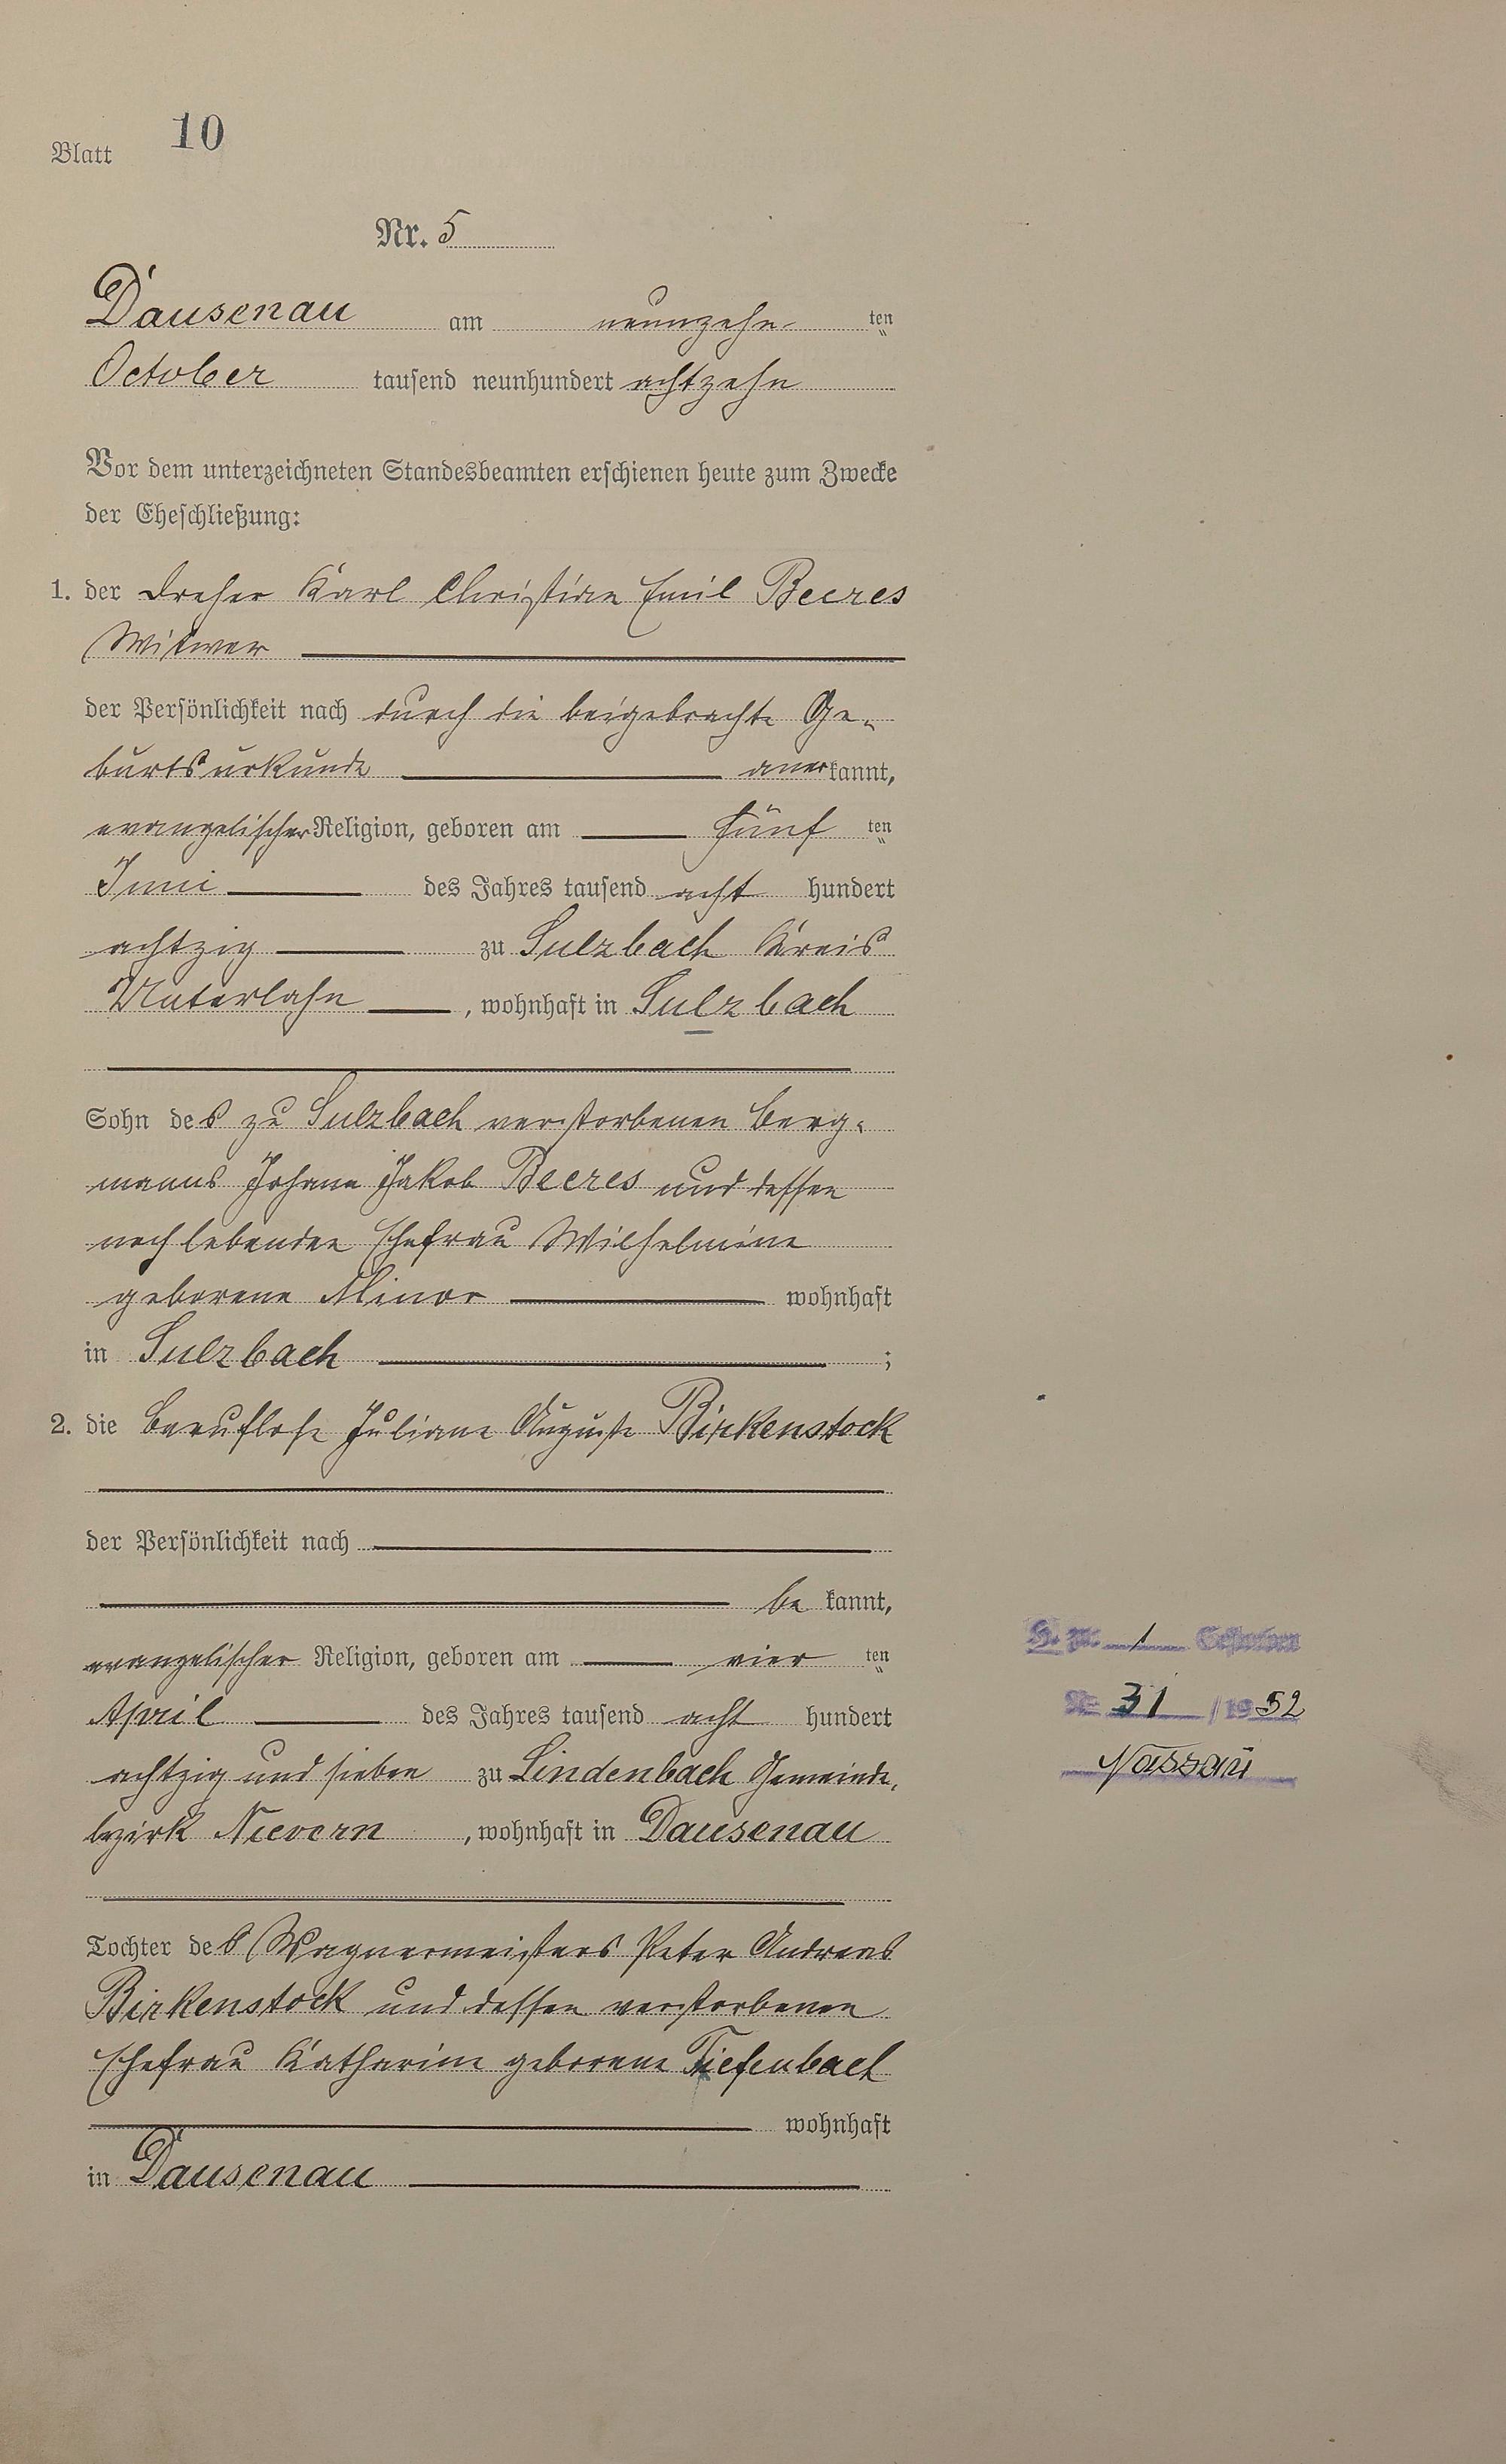 Blatt 10
Nr. 5
Dausenau am neunzehn ten
October tausend neunhundert achtzehn
Vor dem unterzeichneten Standesbeamten erschienen heute zum Zwecke
der Eheschließung:
1. der Dreher Karl Christian Emil Beeres
Witwer
der Persönlichkeit nach durch die beigebrachte Ge-
burtsurkunde anerkannt,
evangelischer Religion, geboren am fünf ten
Juni des Jahres tausend acht hundert
achtzig zu Sulzbach Kreis
Unterlahn, wohnhaft in Sulzbach
Sohn des zu Sulzbach verstorbenen Berg-
manns Johann Jakob Beeres und dessen
noch lebenden Ehefrau Wilhelmine
geborene Minor wohnhaft
in Sulzbach ;
2. die Berufslose Juliane Auguste Birkenstock
der Persönlichkeit nach
be kannt,
evangelischer Religion, geboren am vier ten
April des Jahres tausend acht hundert
achtzig und sieben zu Lindenbach Gemeinde-
bezirk Nievern, wohnhaft in Dausenau
Tochter des Wagnermeisters Peter Andreas
Birkenstock und dessen verstorbenen
Ehefrau Katharine geborene Tiefenbach
wohnhaft
in Dausenau
1 Gestorben
31 /1952
Nassau